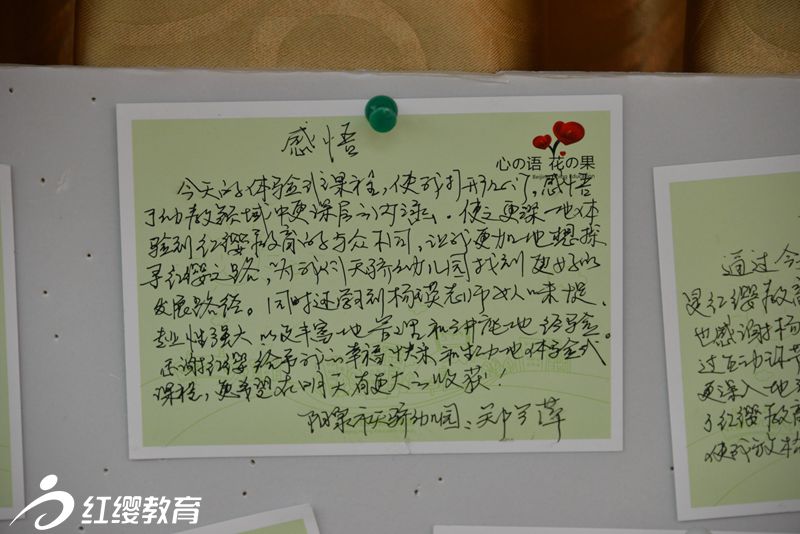 感悟
心の语 花の果
今天的体验式课程,使我打开心门,感悟
了幼教领域中更深层的内涵。使之更深地体
验到红缨教育的与众不同,让我更加地想探
寻红缨之路,为我们天骄幼儿园找到更好的
发展路径。同时还学到杨瑛老师
专业性强大以及丰富地 和 经验。
感谢红缨给予我的幸福快乐和 地体验式
课程,更希望在明天有更大的收获!
阳泉市天骄幼儿园:郑
通过今
灵红缨教育
也感谢杨
过互动环节
更深入地
了红缨教育
使我放
红缨教育